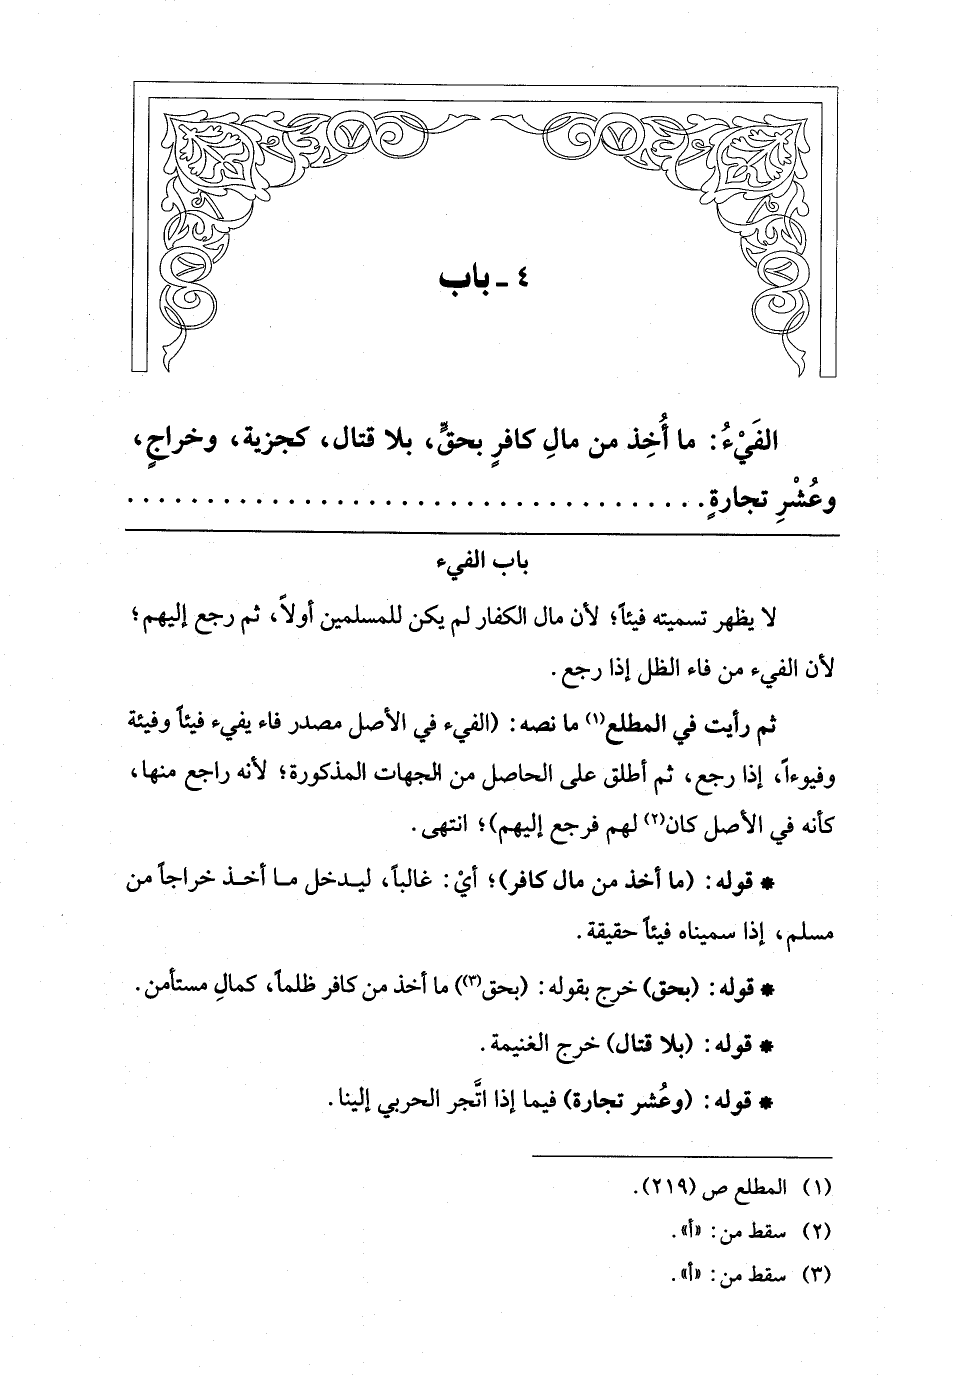 ٤ ـ باب
الفَيْءُ: ما أُخِذ من مالِ كافرٍ بحقٍّ، بلا قتال، كجزية، وخراجٍ،
وعُشْرِ تجارةٍ. . . . . . . . . . . . . . . . . . . . . . . . . . . . . . . . . . . . .
باب الفيء
لا يظهر تسميته فيئاً؛ لأن مال الكفار لم يكن للمسلمين أولاً، ثم رجع إليهم؛
لأن الفيء من فاء الظل إذا رجع.
ثم رأيت في المطلع(١) ما نصه: (الفيء في الأصل مصدر فاء يفيء فيئاً وفيئة
وفيوءاً، إذا رجع، ثم أطلق على الحاصل من الجهات المذكورة؛ لأنه راجع منها،
كأنه في الأصل كان(٢) لهم فرجع إليهم)؛ انتهى.
* قوله: (ما أخذ من مال كافر)؛ أيْ: غالباً، ليدخل ما أخذ خراجاً من
مسلم، إذا سميناه فيئاً حقيقة.
* قوله: (بحق) خرج بقوله: (بحق(٣)) ما أخذ من كافر ظلماً، كمالِ مستأمن.
* قوله: (بلا قتال) خرج الغنيمة.
* قوله: (وعُشر تجارة) فيما إذا اتَّجر الحربي إلينا.
(١) المطلع ص (٢١٩).
(٢) سقط من: «أ».
(٣) سقط من: «أ».